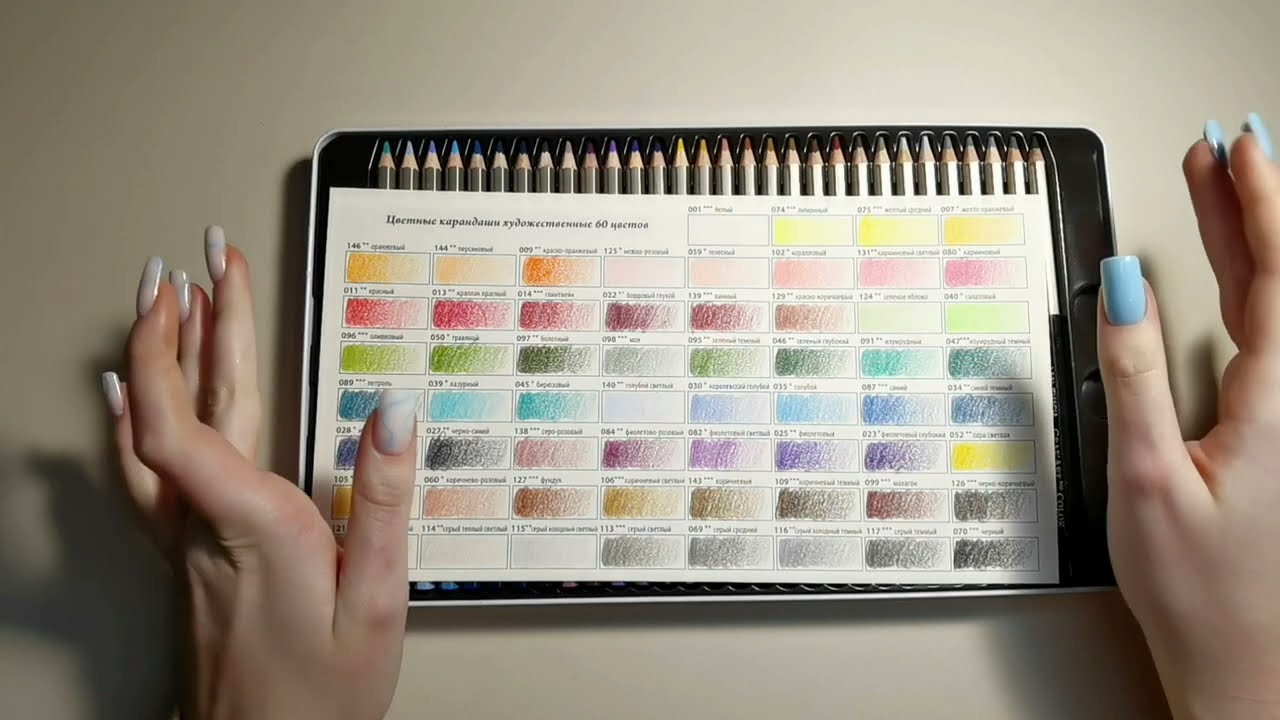 Цветные карандаши художественные 60 цветов
001 *** белый 074 *** лимонный 075 *** желтый средний 007 * желто-оранжевый
146 ** оранжевый 144 ** персиковый 009 ** красно-оранжевый 125 * нежно-розовый 059 * телесный 102 * коралловый 131** карминовый светлый 080 * карминовый
011 ** красный 013 ** краплак красный 014 *** глинтвейн 022 ** бордовый глухой 139 *** винный 129 ** красно-коричневый 124 ** зеленое яблоко 040 * салатовый
096 *** оливковый 050 * травяной 097 ** болотный 098 *** мох 095 ** зеленый темный 046 ** зеленый глубокий 091 ** изумрудный 047*** изумрудный темный
089 *** петроль 039 * лазурный 045 * бирюзовый 140 *** голубой светлый 030 * королевский голубой 035 * голубой 087 *** синий 034 *** синий темный
028 * 027 ** черно-синий 138 *** серо-розовый 084 ** фиолетово-розовый 082 ** фиолетовый светлый 025 ** фиолетовый 023 * фиолетовый глубокий 052 ** охра светлая
105 060 * коричнево-розовый 127 *** фундук 106*** коричневый светлый 143 *** коричневый 109 *** коричневый темный 099 *** махагон 126 *** черно-коричневый
121 114 ** серый теплый светлый 115 ** серый холодный светлый 113 *** серый светлый 069 ** серый средний 116 ** серый холодный темный 117 *** серый темный 070 *** черный
COLOR